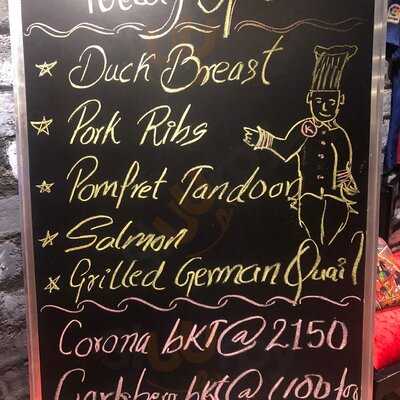 Today's Spe
Duck Breast
Pork Ribs
Pomfret Tandoori
Salmon
Grilled German Quail
Corona bKT@2150
Carlsberg bkt@1100 for
K